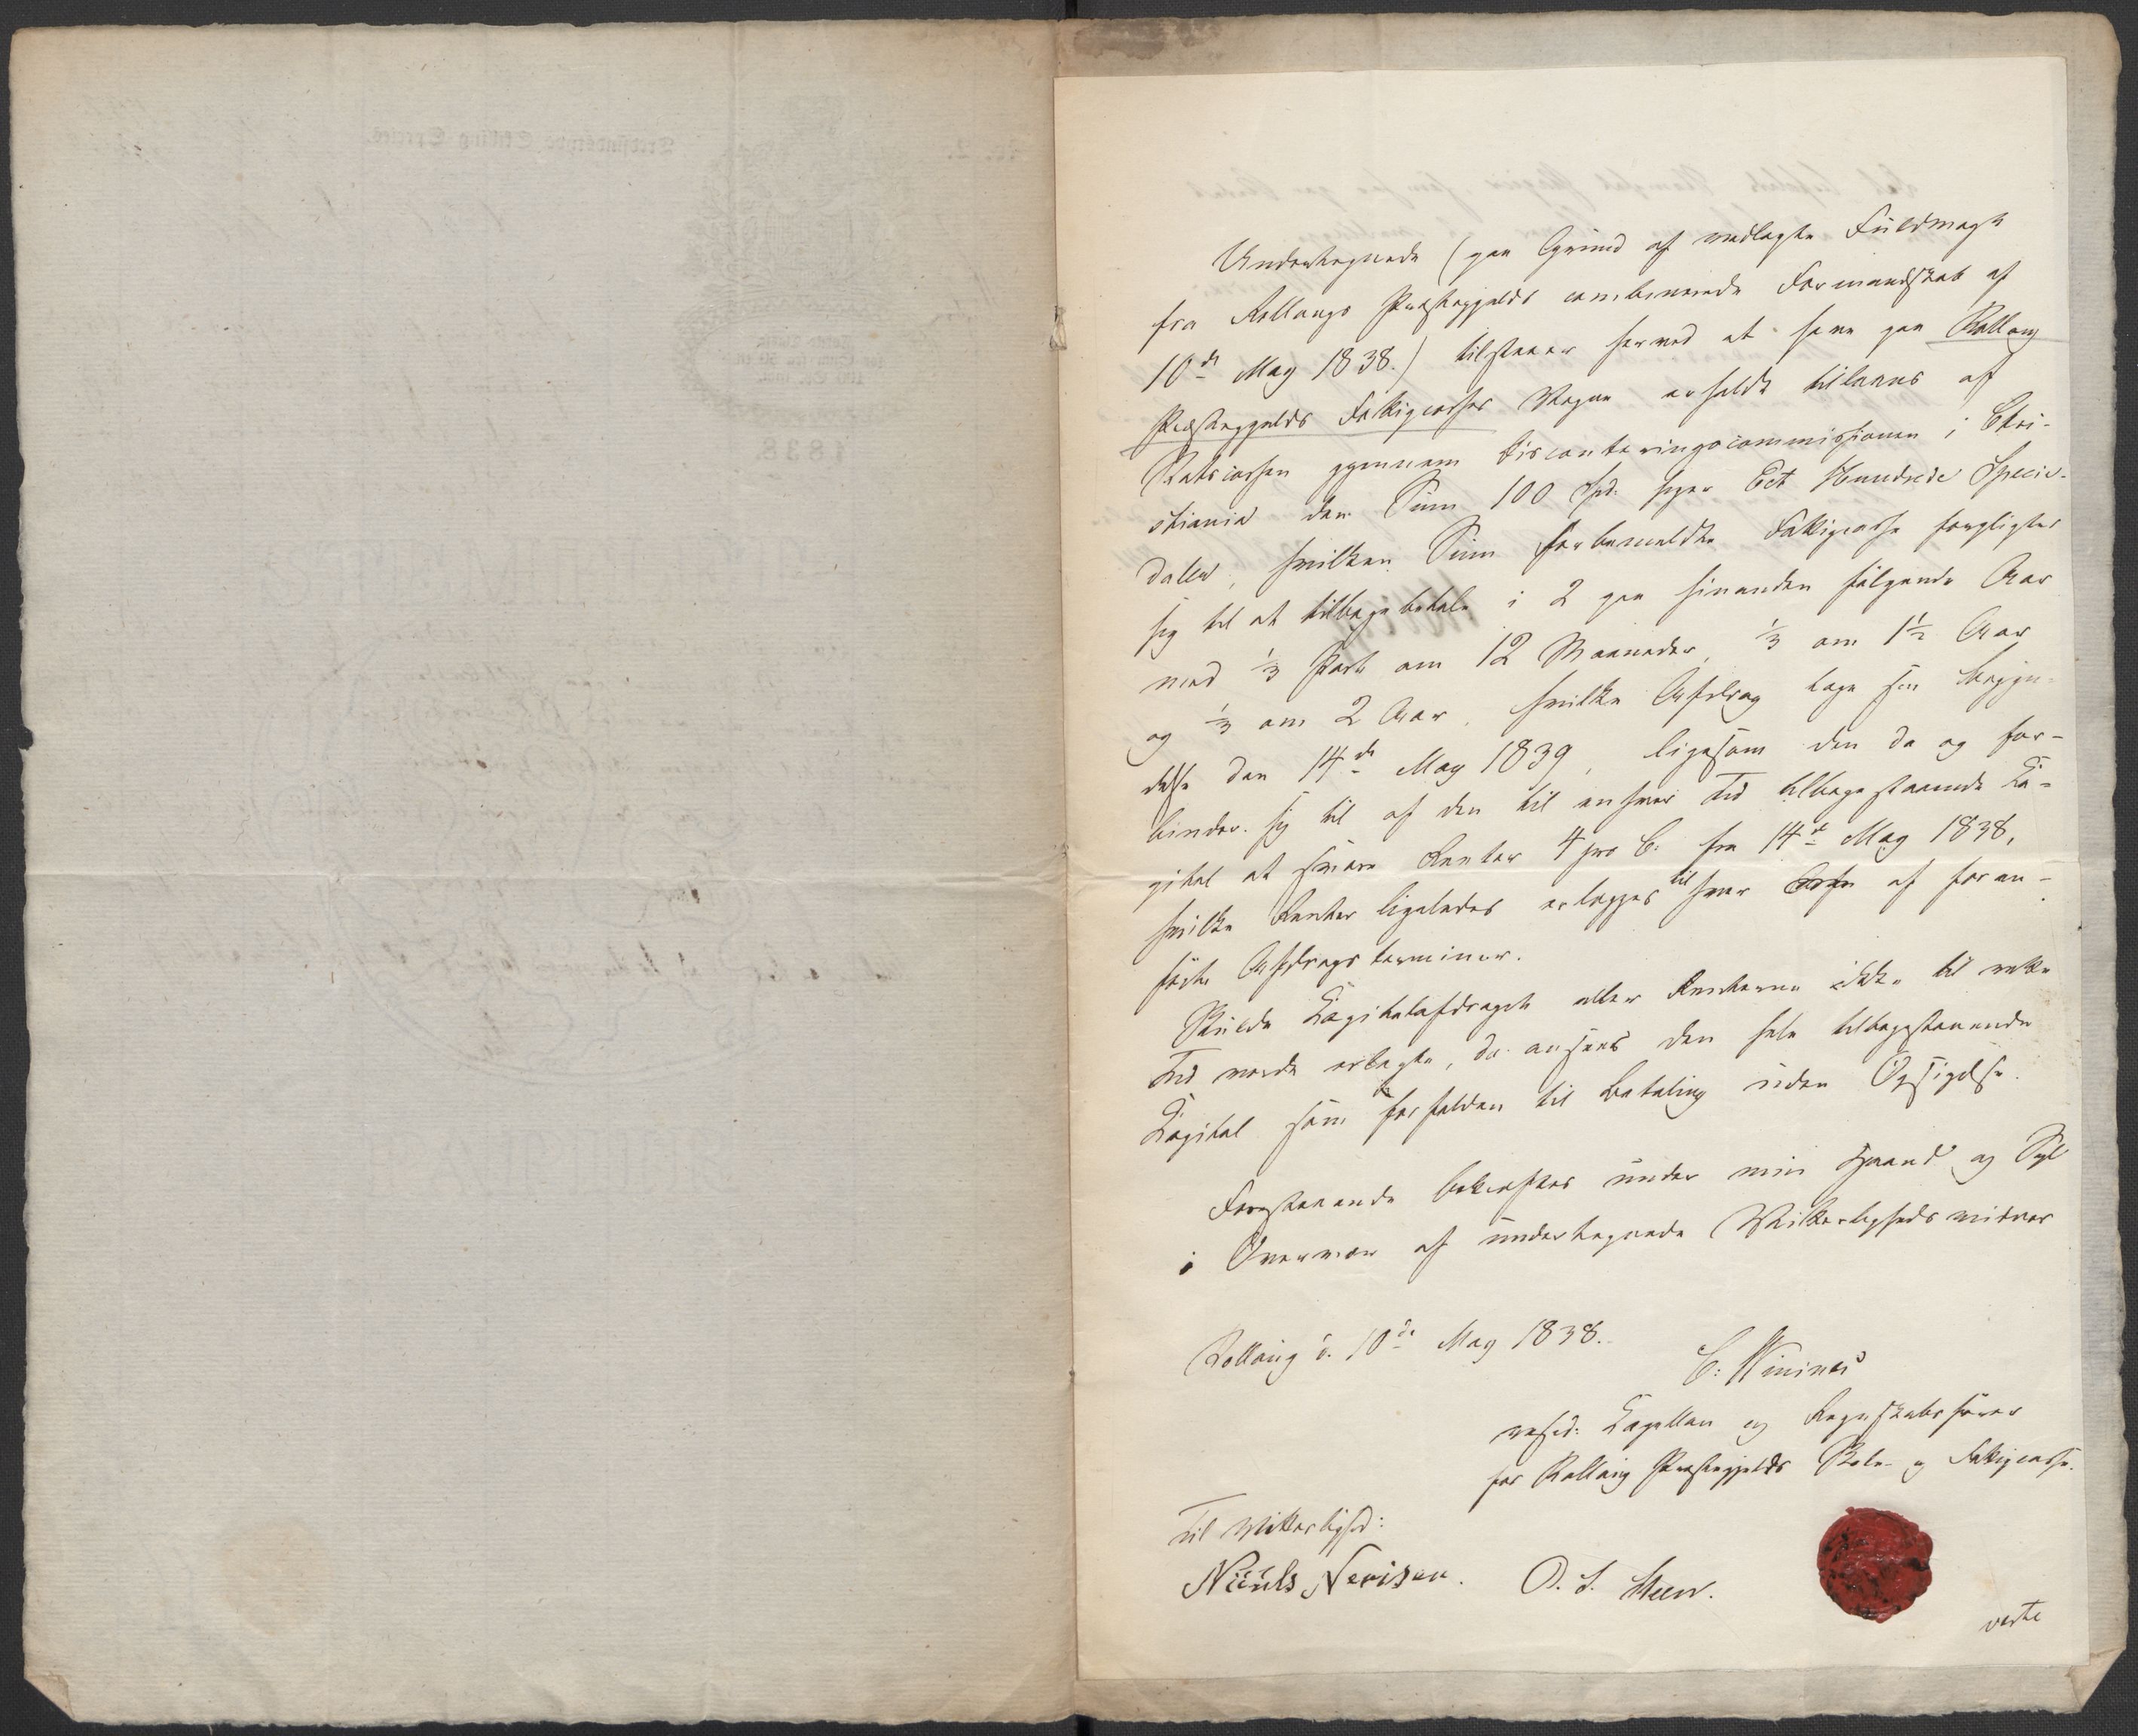 Undertegnede (paa Grund af vedlagte Fuldmagt
fra Rollaugs Præstegjelds combinerede Formandskab af
10de May 1838.) tilstaaer herved at have paa Rollaug
Præstegjelds Fattigcasses Vegne erholdt tillaans af
Statscassen gjennem Disconteringscommissionen i Chri-
stiania den Sum 100 Spd. siger Eet Hundrede Specie-
daler, hvilken Sum forbemeldte Fattigcasse forpligter
sig til at tilbagebetale i 2 paa hinanden følgende Aar
med 1/3 Part om 12 Maaneder, 1/3 om 1½ Aar
og 1/3 om 2 Aar, hvilke Afdrag tage sin Begyn-
delse den 14de May 1839, ligesom den da og for-
binder sig til af den til enhver Tid tilbagestaaende Ca-
pital at svare Renter 4 pro C. fra 14de May 1838,
hvilke Renter ligeledes erlægges til hver af foran-
førte Afdragsterminer.
Skulde Capitalafdraget eller Renterne ikke til rette
Tid vorde erlagte, da ansees den hele tilbagestaaende
Capital som forfalden til Betaling uden Opsigelse.
Forestaaende bekræftes under min Haand og Segl
i Overvær af undertegnede Vitterlighedsvidner
Rollaug d. 10de May 1838.
C:
resid: Capellan og Regnskabsfører
for Rollaug Præstegjelds Skole- og Fattigcasse.
Til Vitterlighed:
Niels Nerisen. O. S. Steen.
verte
No. 2.
1838.